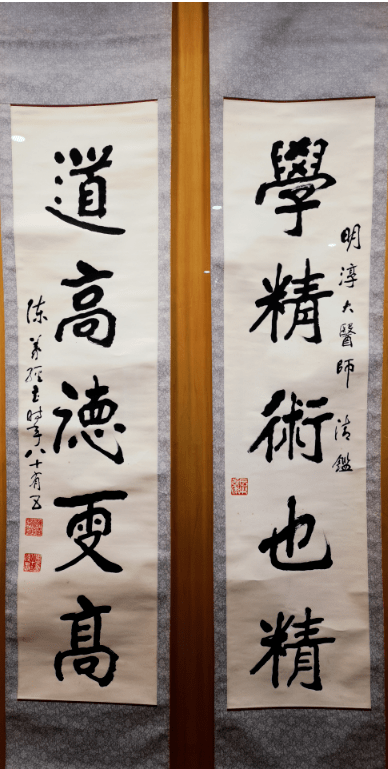 明淳大醫師 清鑑
學精術也精
道高德更高
陳義經書時年八十有五